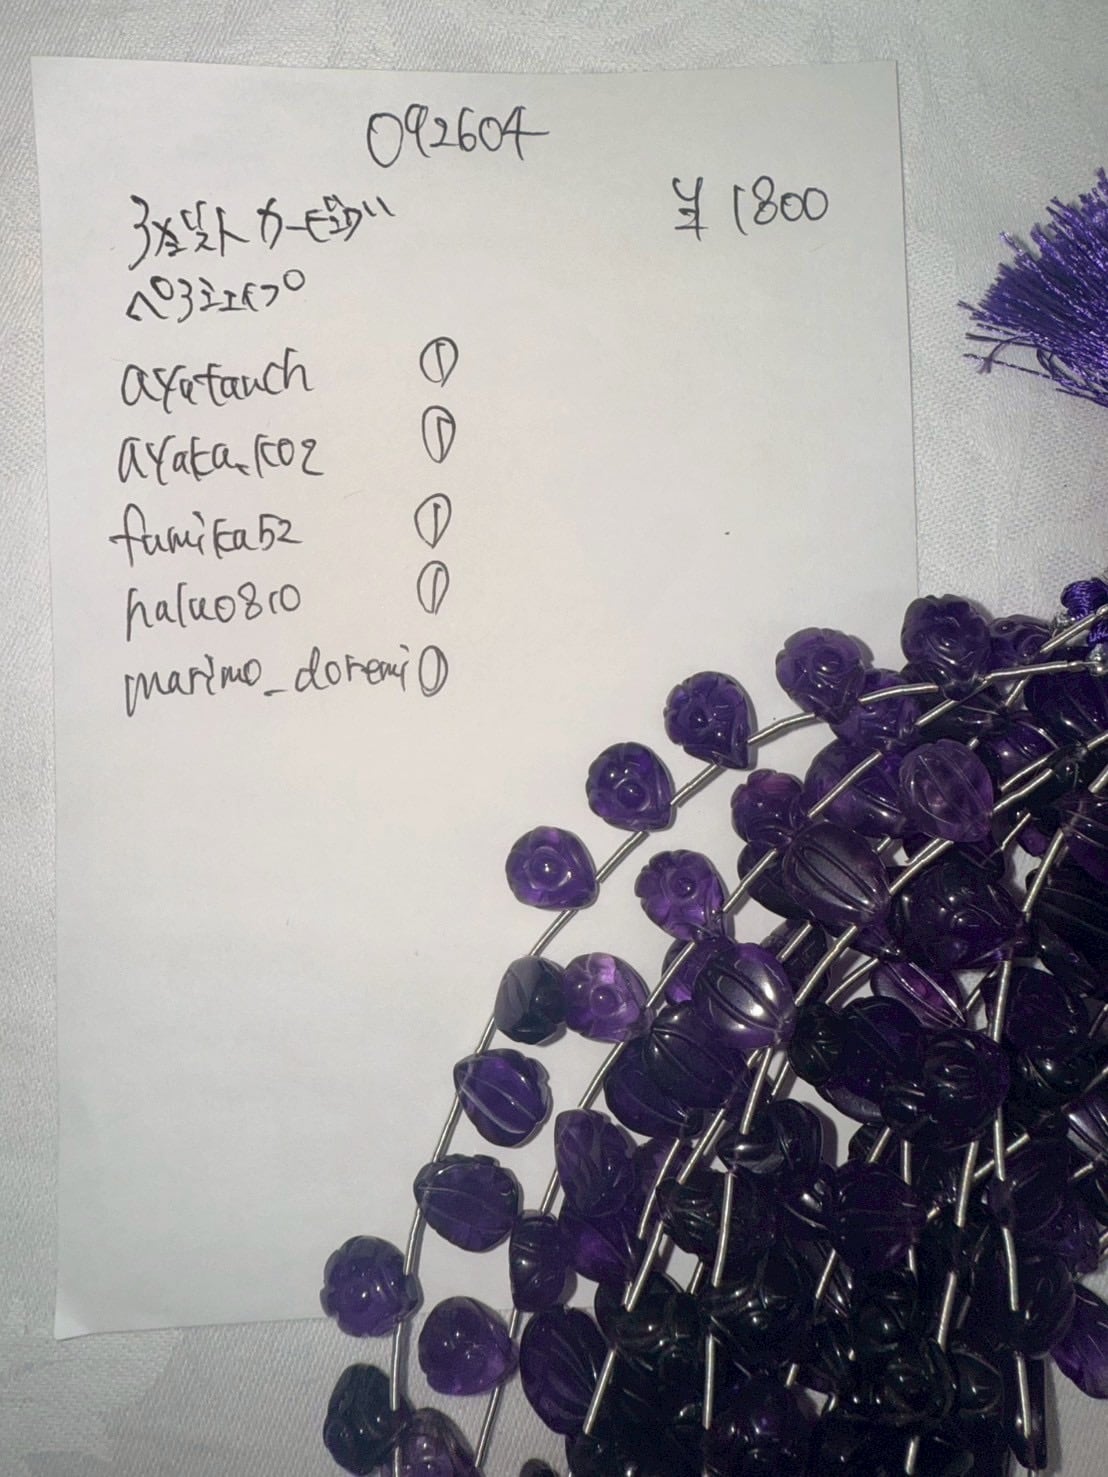 092604
アメジストカービング ¥1800
ペアシェイプ
ayatauch ①
ayaka.k02 ①
fumika52 ①
haluo810 ①
marimo_doremi ①